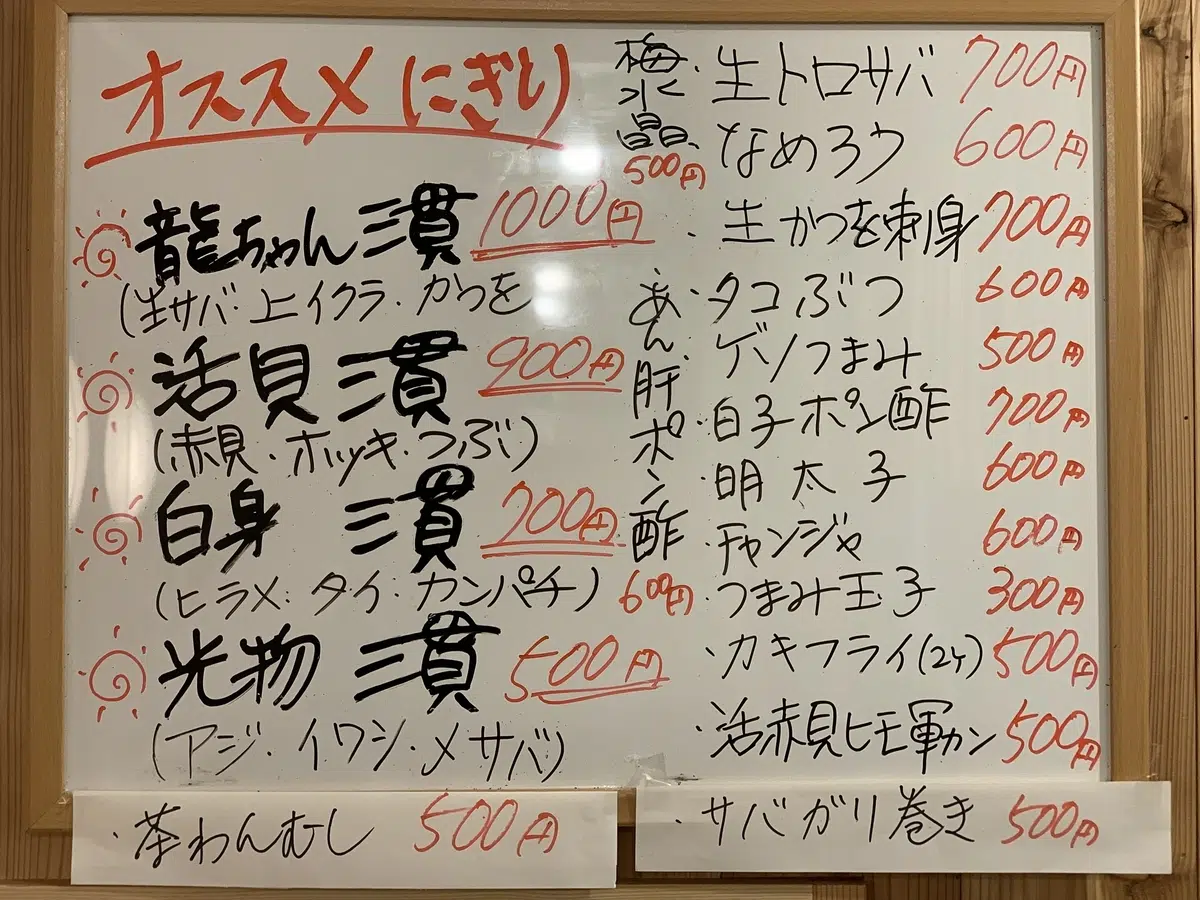 オススメ にぎり
龍ちゃん 三貫 1000円
(生サバ・上イクラ・かつを
活貝 三貫 900円
(赤貝・ホッキ・つぶ)
白身 三貫 700円
(ヒラメ・タイ・カンパチ)
光物 三貫 500円
(アジ・イワシ・〆サバ)
・茶わんむし 500円
梅水晶 500円
あん肝ポン酢 600円
・生トロサバ 700円
なめろう 600円
・生かつを刺身 700円
・タコぶつ 600円
・ゲソつまみ 500円
・白子ポン酢 700円
・明太子 600円
・チャンジャ 600円
・つまみ玉子 300円
・カキフライ(2ヶ) 500円
・活赤貝ヒモ軍カン 500円
・サバガリ巻き 500円